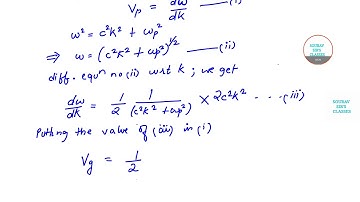 Vp = dω/dk —(i)
ω² = c²k² + ωp²
⇒ ω = (c²k² + ωp²)^1/2 —(ii)
diff. eqn no (ii) wrt k ; we get
dω/dk = 1/2 1/(c²k² + ωp²) × 2c²k² - - - (iii)
Putting the value of (iii) in (i)
Vg = 1/2
SOURAV
SIR'S
CLASSES
SOURAV
SIR'S
CLASSES